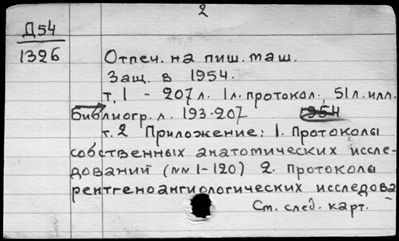 2
Д54
1326
Отпеч. на пиш. маш.
Защ. в 1954.
т. 1 - 207 л. 1 л. протокол. 51 л. илл.
Библиогр. л. 193-207 1954
т. 2 Приложение: 1. Протоколы
собственных анатомических иссле-
дований (NN 1-120) 2. Протоколы
рентгеноангиологических исследова
См. след. карт.